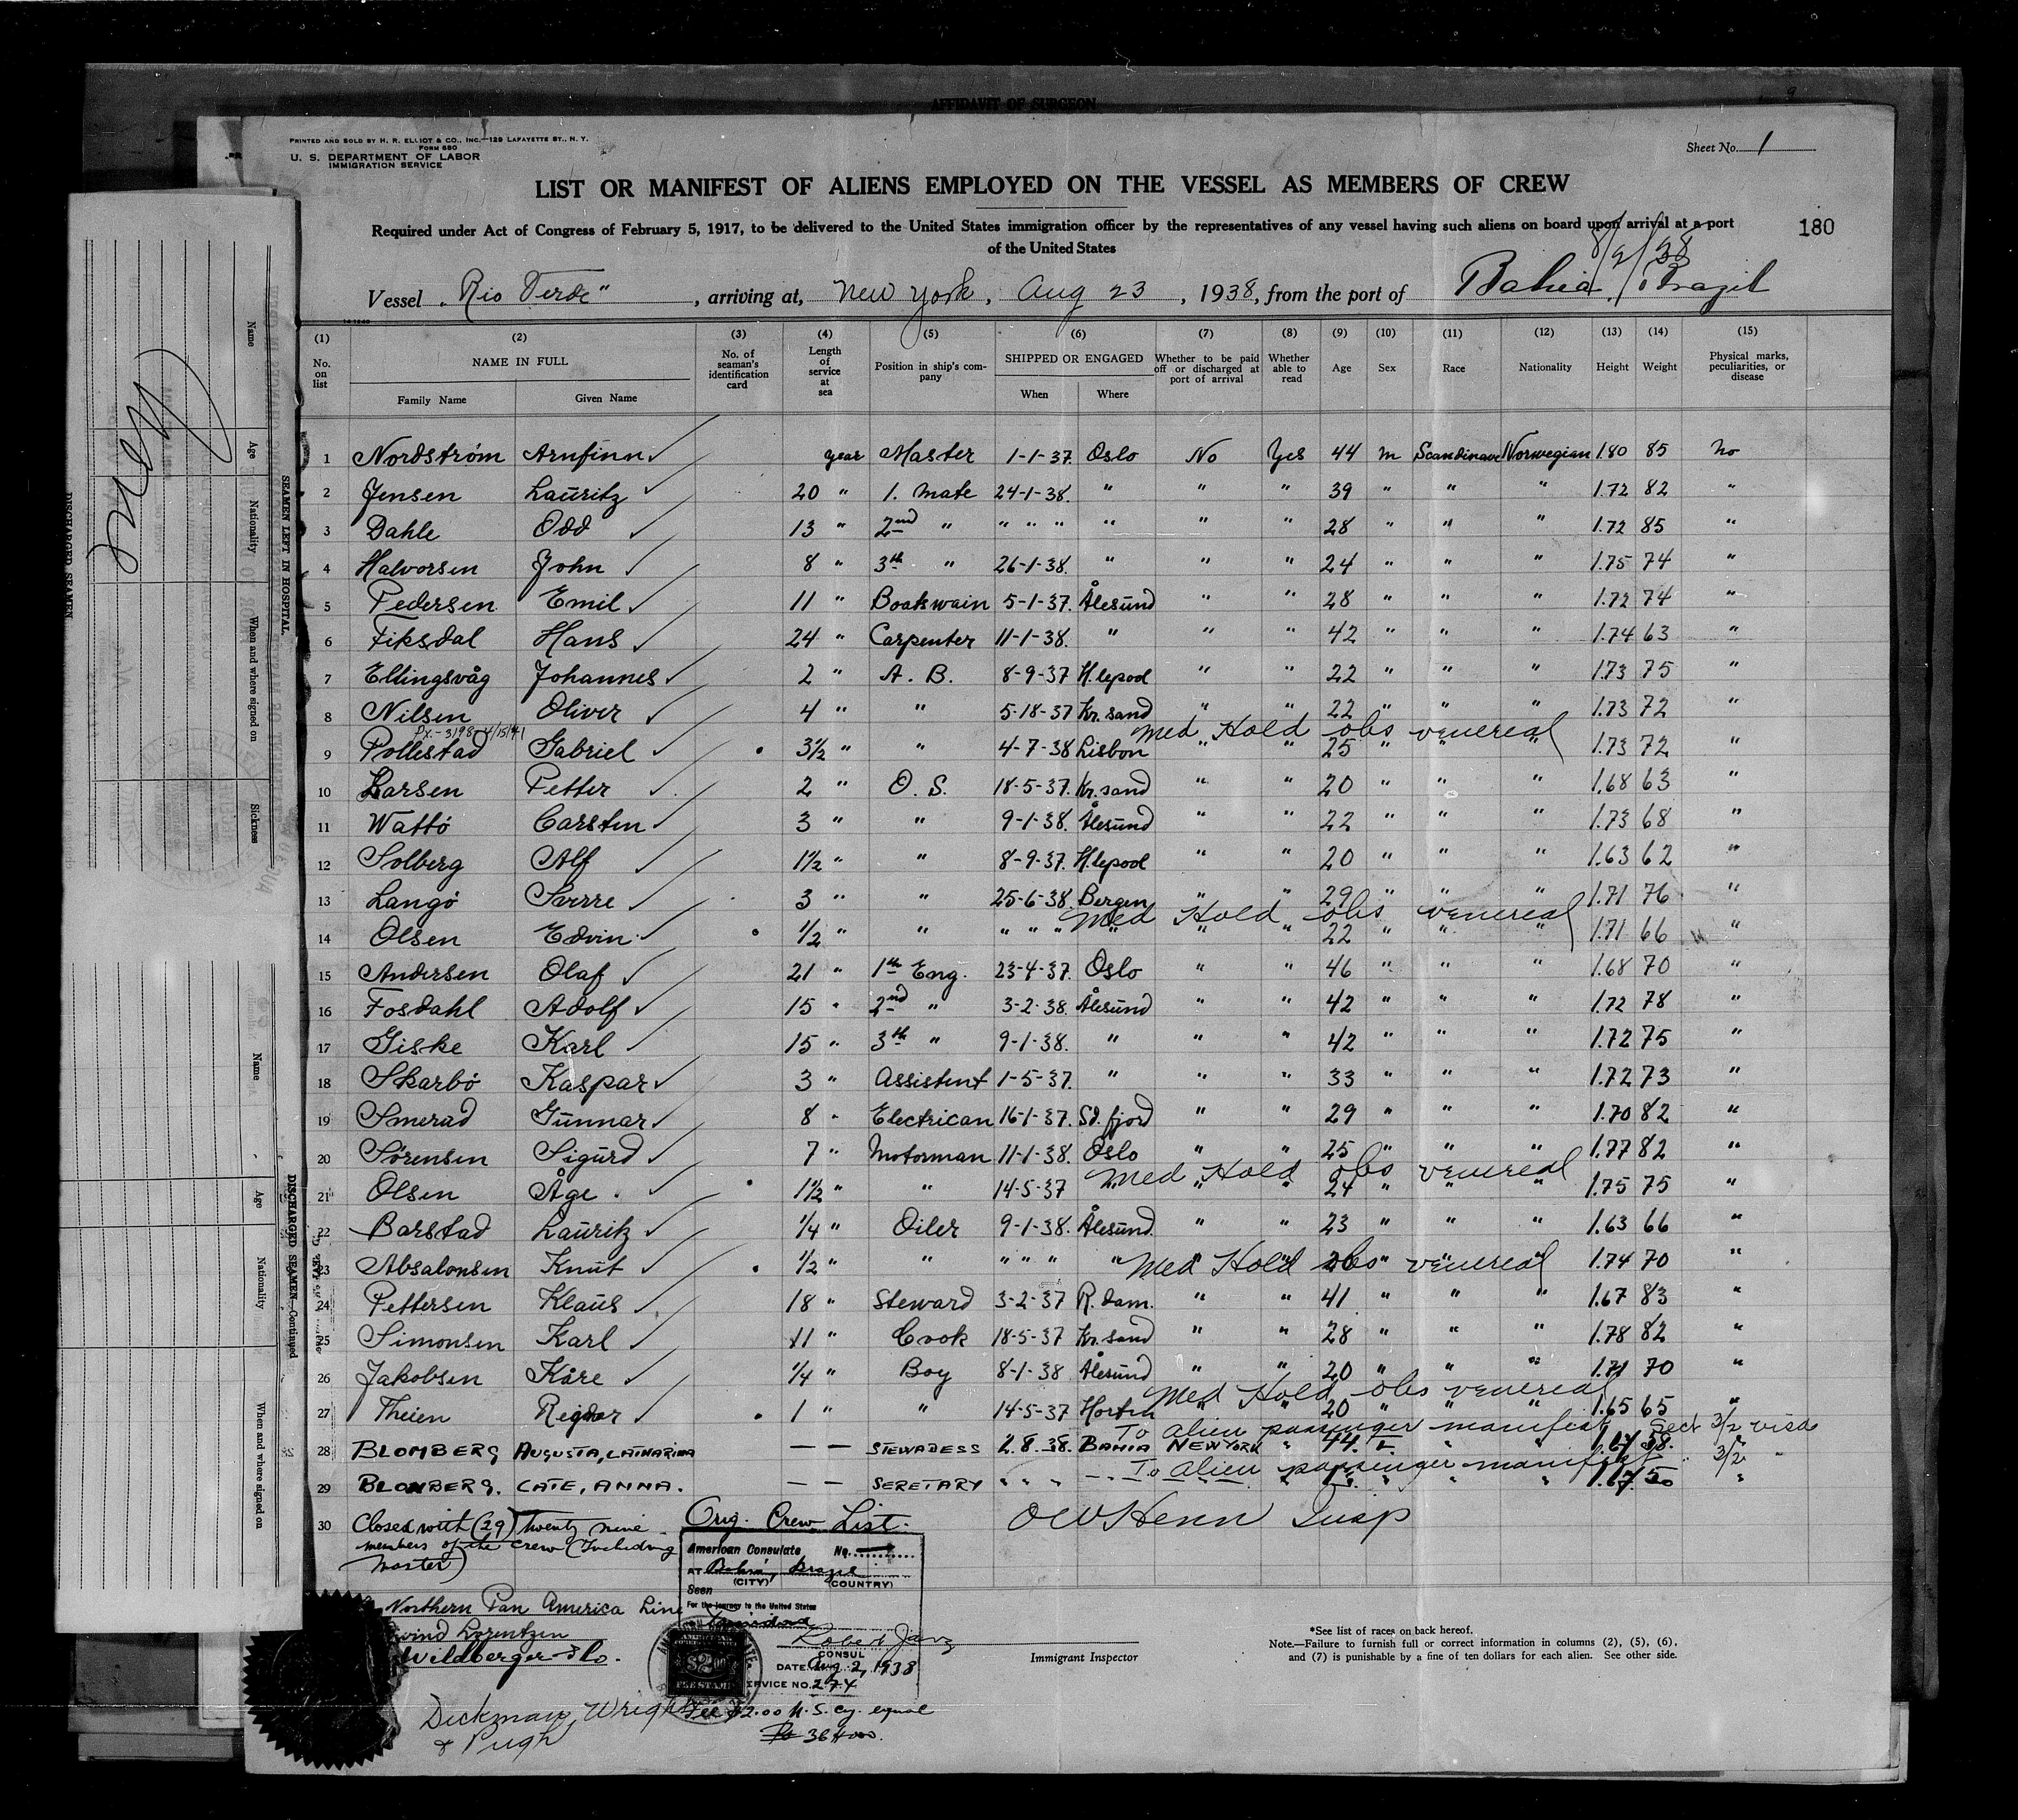 AFFIDAVIT OF SURGEON
PRINTED AND SOLD BY H. R. ELLIOT & CO., INC.—129 LAFAYETTE ST., N. Y.
FORM 680
U. S. DEPARTMENT OF LABOR
IMMIGRATION SERVICE
Sheet No. 1
LIST OR MANIFEST OF ALIENS EMPLOYED ON THE VESSEL AS MEMBERS OF CREW
Required under Act of Congress of February 5, 1917, to be delivered to the United States immigration officer by the representatives of any vessel having such aliens on board upon arrival at a port
of the United States
180
8/2/38
Vessel "Rio Verde", arriving at, New York, Aug 23, 1938, from the port of Bahia / Brazil
(1) (2) (3) (4) (5) (6) (7) (8) (9) (10) (11) (12) (13) (14) (15)
No. on list
NAME IN FULL
Family Name
Given Name
No. of seaman's identification card
Length of service at sea
Position in ship's company
SHIPPED OR ENGAGED
When
Where
Whether to be paid off or discharged at port of arrival
Whether able to read
Age
Sex
Race
Nationality
Height
Weight
Physical marks, peculiarities, or disease
1 Nordstrøm Arnfinn year Master 1-1-37. Oslo No Yes 44 m Scandinave Norwegian 1.80 85 No
2 Jensen Lauritz 20 " 1. Mate 24-1-38. " " " 39 " " " 1.72 82 "
3 Dahle Odd 13 " 2nd " " " " " " " 28 " " " 1.72 85 "
4 Halvorsen John 8 " 3th " 26-1-38. " " " 24 " " " 1.75 74 "
5 Pedersen Emil 11 " Boatswain 5-1-37. Ålesund " " 28 " " " 1.72 74 "
6 Fiksdal Hans 24 " Carpenter 11-1-38. " " " 42 " " " 1.74 63 "
7 Ellingsvåg Johannes 2 " A. B. 8-9-37 H.lepool " " 22 " " " 1.73 75 "
8 Nilsen Oliver 4 " " 5-18-37 Kr.sand " " 22 " " " 1.73 72 "
Px.-3198-4/15/41
Med Hold obs venereal
9 Pollestad Gabriel 3½ " " 4-7-38 Lisbon " " 25 " " " 1.73 72 "
10 Larsen Petter 2 " O. S. 18-5-37. Kr.sand " " 20 " " " 1.68 63 "
11 Wattø Carsten 3 " " 9-1-38. Ålesund " " 22 " " " 1.73 68 "
12 Solberg Alf 1½ " " 8-9-37. H.lepool " " 20 " " " 1.63 62 "
13 Langø Sverre 3 " " 25-6-38. Bergen " " 29 " " " 1.71 76 "
Med Hold obs venereal
14 Olsen Edvin ½ " " " " " " " " 22 " " " 1.71 66 "
15 Andersen Olaf 21 " 1th Eng. 23-4-37. Oslo " " 46 " " " 1.68 70 "
16 Fosdahl Adolf 15 " 2nd " 3-2-38. Ålesund " " 42 " " " 1.72 78 "
17 Giske Karl 15 " 3th " 9-1-38. " " " 42 " " " 1.72 75 "
18 Skarbø Kaspar 3 " Assistent 1-5-37. " " " 33 " " " 1.72 73 "
19 Smerad Gunnar 8 " Electrican 16-1-37. Sd.fjord " " 29 " " " 1.70 82 "
20 Sørensen Sigurd 7 " Motorman 11-1-38. Oslo " " 25 " " " 1.77 82 "
Med Hold obs venereal
21 Olsen Åge 1½ " " 14-5-37 " " " 24 " " " 1.75 75 "
22 Barstad Lauritz ¼ " Oiler 9-1-38. Ålesund. " " 23 " " " 1.63 66 "
23 Absalonsen Knut ½ " " " " " " " " " " " 1.74 70 "
Med Hold obs venereal
24 Pettersen Klaus 18 " Steward 3-2-37 R.dam. " " 41 " " " 1.67 83 "
25 Simonsen Karl 11 " Cook 18-5-37 Kr.sand " " 28 " " " 1.78 82 "
26 Jakobsen Kåre ¼ " Boy 8-1-38 Ålesund " " 20 " " " 1.71 70 "
Med Hold obs venereal
27 Theien Regnar 1 " " 14-5-37 Horten " " 20 " " " 1.65 65 "
To alien passenger manifest Sect 3/2 visa
28 BLOMBERG AUGUSTA, CATHARINA — — STEWADESS 2.8.38. BAHIA NEW YORK " 44. F. " " 58. "
To alien passenger manifest 3/2 "
29 BLOMBERG. CATE, ANNA. — — SERETARY " " " " " " 50 "
30 Closed with (29) Twenty nine
members of the crew (Including
Master)
Orig. Crew List.
O W Henn Insp
American Consulate No.
AT Bahia, Brazil
(CITY) (COUNTRY)
Seen
For the journey to the United States
CONSUL
DATE: Aug. 2, 1938
SERVICE NO. 274
Fee $2.00 U.S. cy. equal
Northern Pan America Line
Lorentzen
Wildberger & Co.
Dickman, Wright
& Pugh
Immigrant Inspector
*See list of races on back hereof.
Note.—Failure to furnish full or correct information in columns (2), (5), (6),
and (7) is punishable by a fine of ten dollars for each alien. See other side.
Name
Age
Nationality
When and where signed on
Sickness
SEAMEN LEFT IN HOSPITAL
DISCHARGED SEAMEN
Name
Age
Nationality
When and where signed on
DISCHARGED SEAMEN—Continued